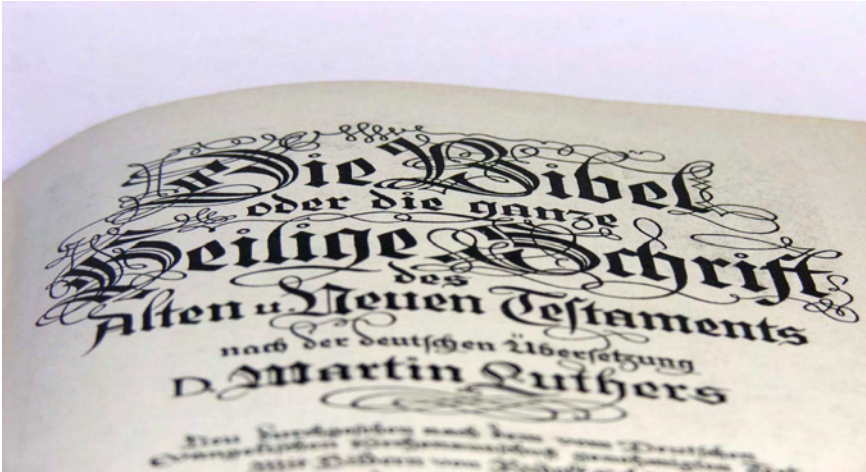 Die Bibel
oder die ganze
Heilige Schrift
des
Alten u. Neuen Testaments
nach der deutschen Übersetzung
D. Martin Luthers
Neu durchgesehen nach dem vom Deutschen
Evangelischen Kirchenausschuß genehmigten
Mit Bildern von Rudolf